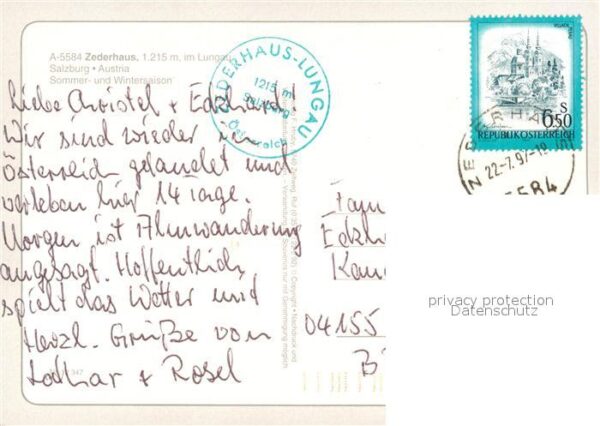 A-5584 Zederhaus, 1.215 m, im Lungau
Salzburg • Austria
Sommer- und Wintersaison
ZEDERHAUS-LUNGAU
1215 m
Salzburg
Österreich
S
6.50
REPUBLIK ÖSTERREICH
ZEDERHAUS
22.-7.97-12
5584
Liebe Christel + Edzhard!
Wir sind wieder in
Österreich gelandet und
verleben hier 14 Tage.
Morgen ist Almwanderung
angesagt. Hoffentlich
spielt das Wetter mit
Herzl. Grüße von
Lothar + Rosel
Fam
Edzh
Kan
04155
B
347
privacy protection
Datenschutz